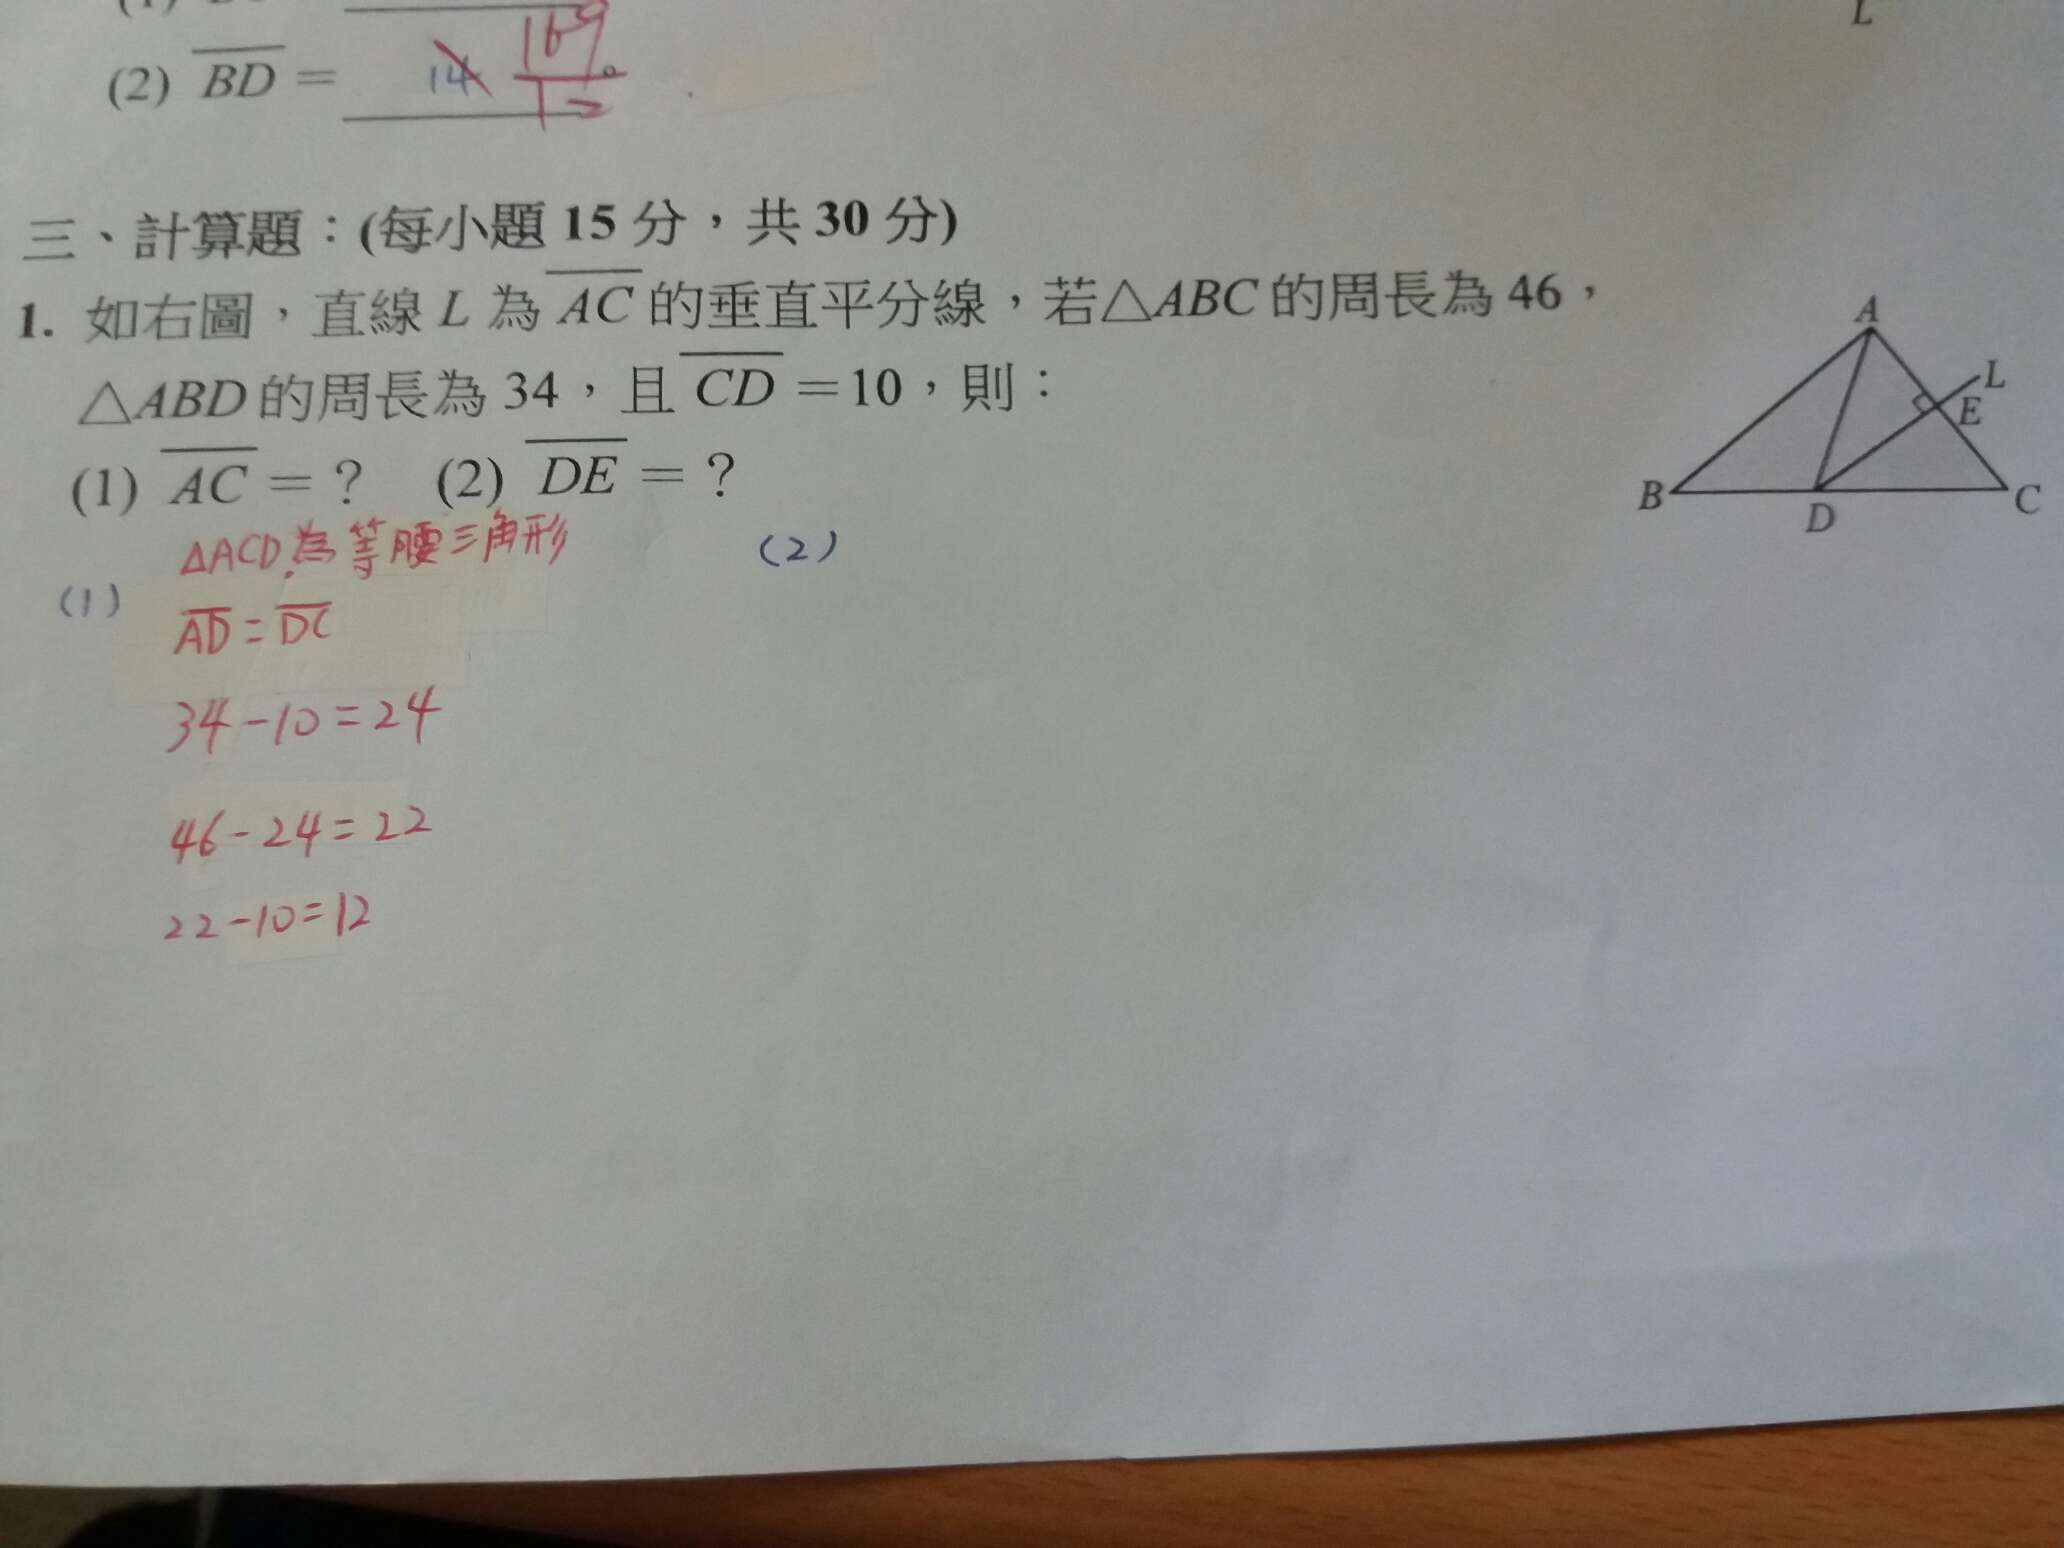 L
(2) BD = 14 169/12
三、計算題：(每小題 15 分，共 30 分)
1. 如右圖，直線 L 為 AC 的垂直平分線，若△ABC 的周長為 46，
△ABD 的周長為 34，且 CD =10，則：
(1) AC = ? (2) DE = ?
A
L
E
B
D
C
△ACD為等腰三角形
(2)
(1)
AD = DC
34-10=24
46-24=22
22-10=12